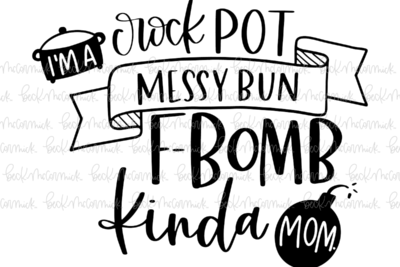 I'M A
crock POT
MESSY BUN
F-BOMB
kinda
MOM.